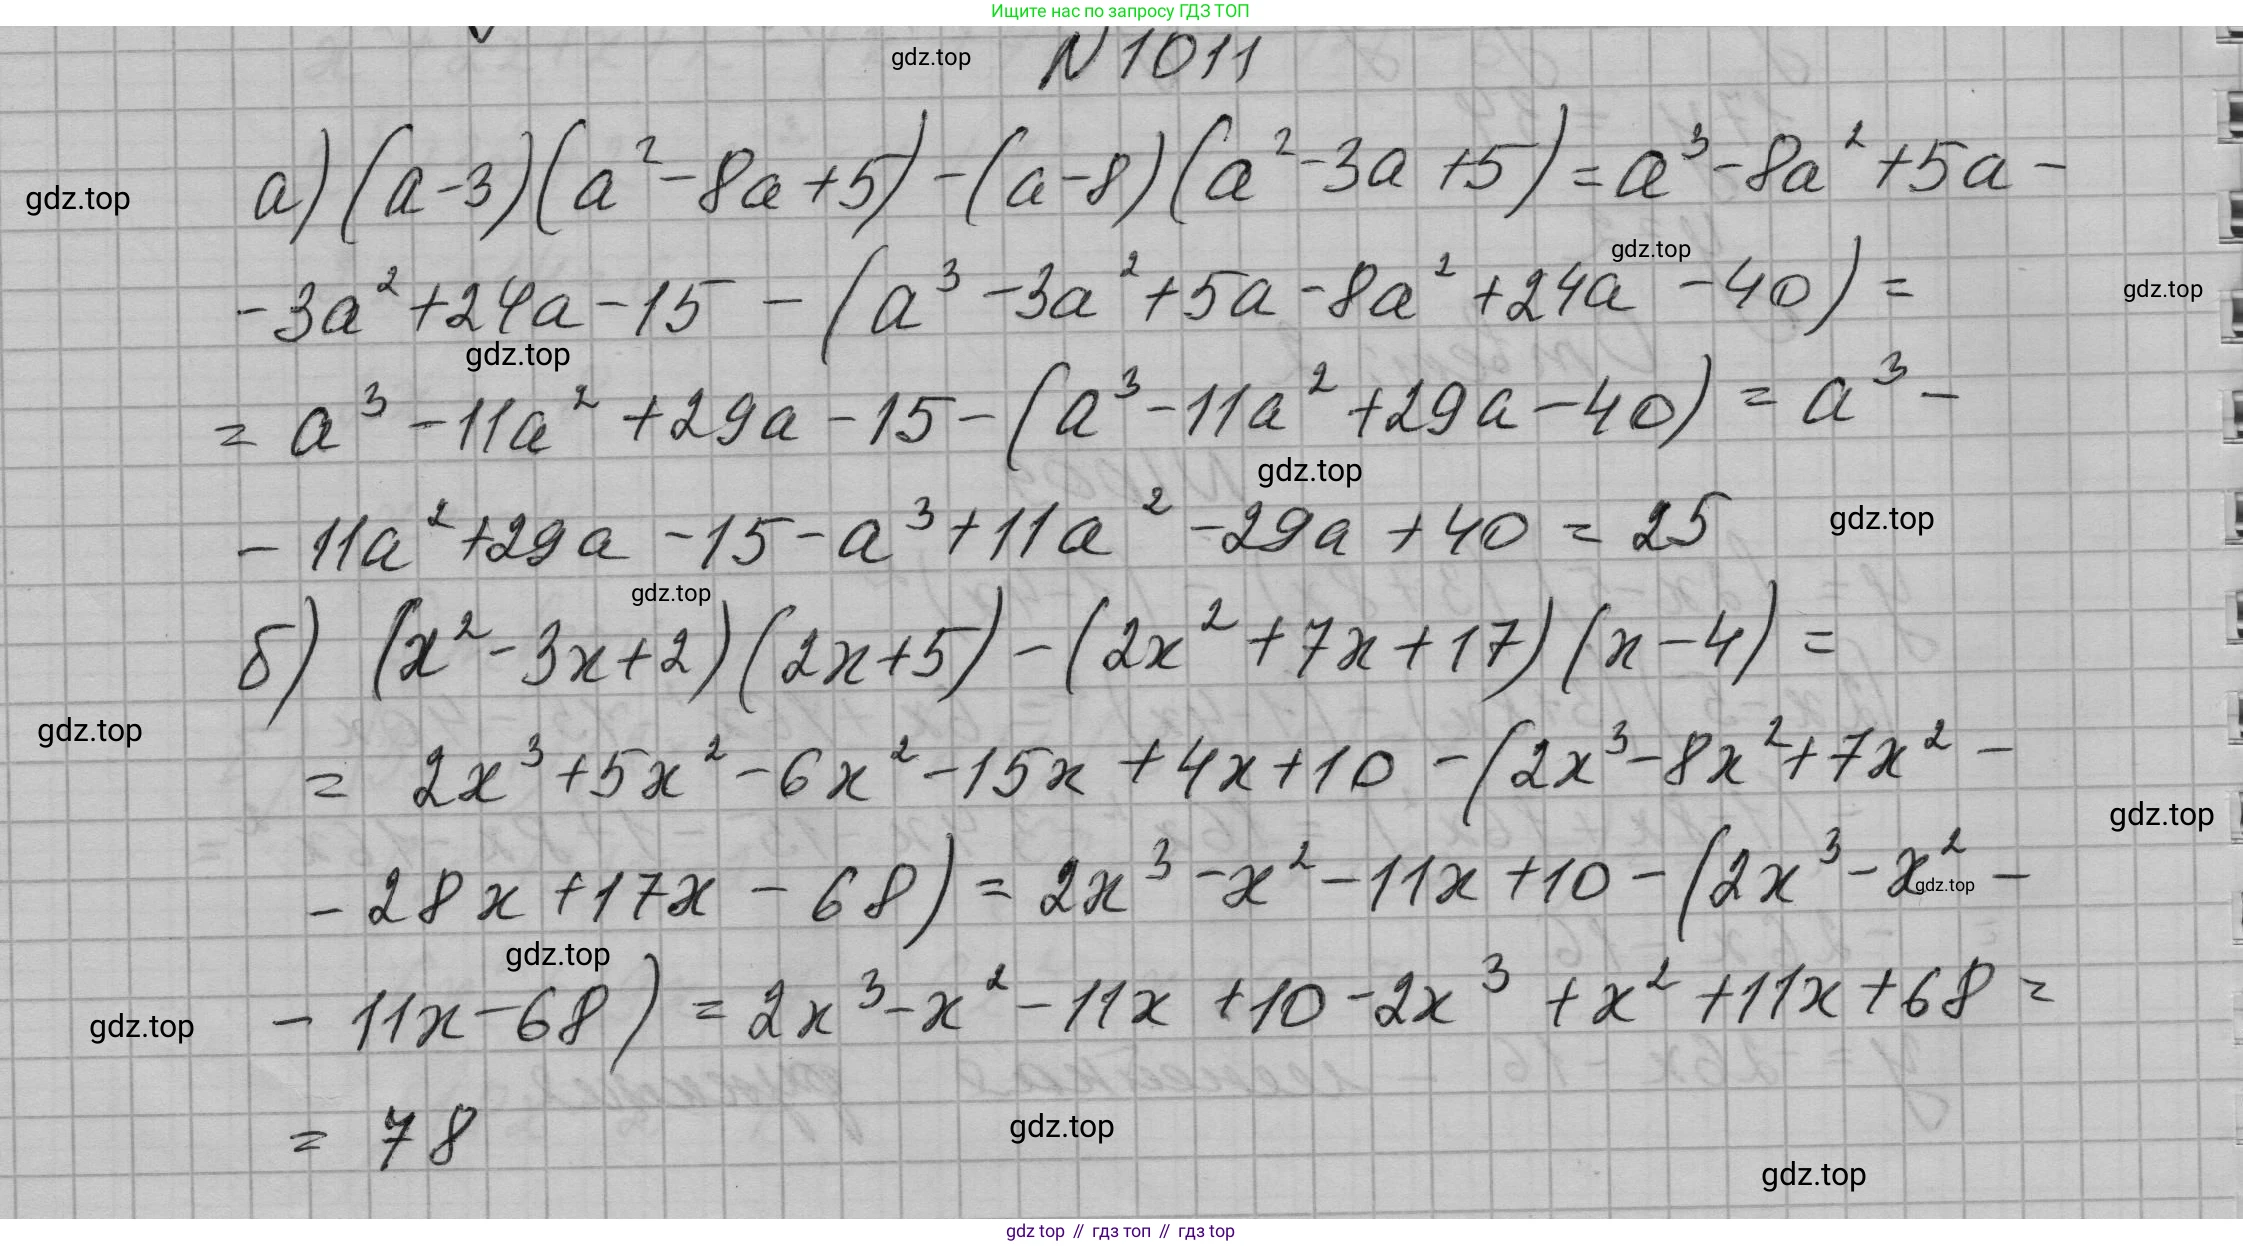 Ищите нас по запросу ГДЗ ТОП
gdz.top
N 1011
а) (a-3)(a²-8a+5)-(a-8)(a²-3a+5)=a³-8a²+5a-
gdz.top
gdz.top
-3a²+24a-15-(a³-3a²+5a-8a²+24a-40)=
gdz.top
gdz.top
=a³-11a²+29a-15-(a³-11a²+29a-40)=a³-
gdz.top
-11a²+29a-15-a³+11a²-29a+40=25
gdz.top
gdz.top
б) (x²-3x+2)(2x+5)-(2x²+7x+17)(x-4)=
gdz.top
=2x³+5x²-6x²-15x+4x+10-(2x³-8x²+7x²-
gdz.top
-28x+17x-68)=2x³-x²-11x+10-(2x³-x²-
gdz.top
gdz.top
-11x-68)=2x³-x²-11x+10-2x³+x²+11x+68=
gdz.top
=78
gdz.top
gdz.top
gdz top // гдз топ // gdz top